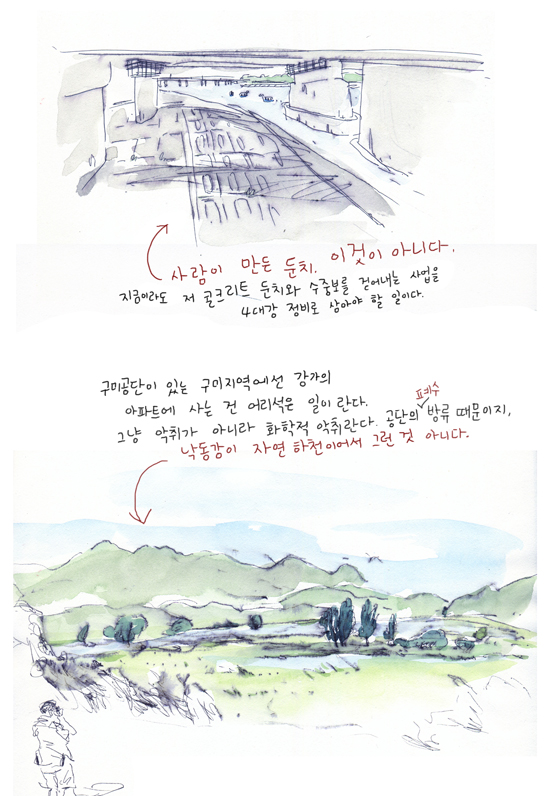 사람이 만든 둔치. 이것이 아니다.
지금이라도 저 콩크리트 둔치와 수중보를 걷어내는 사업을
4대강 정비로 삼아야 할 일이다.
구미공단이 있는 구미지역에선 강가의
아파트에 사는 건 어리석은 일이란다.
폐수
그냥 악취가 아니라 화학적 악취란다. 공단의 방류 때문이지,
낙동강이 자연하천이어서 그런 것 아니다.